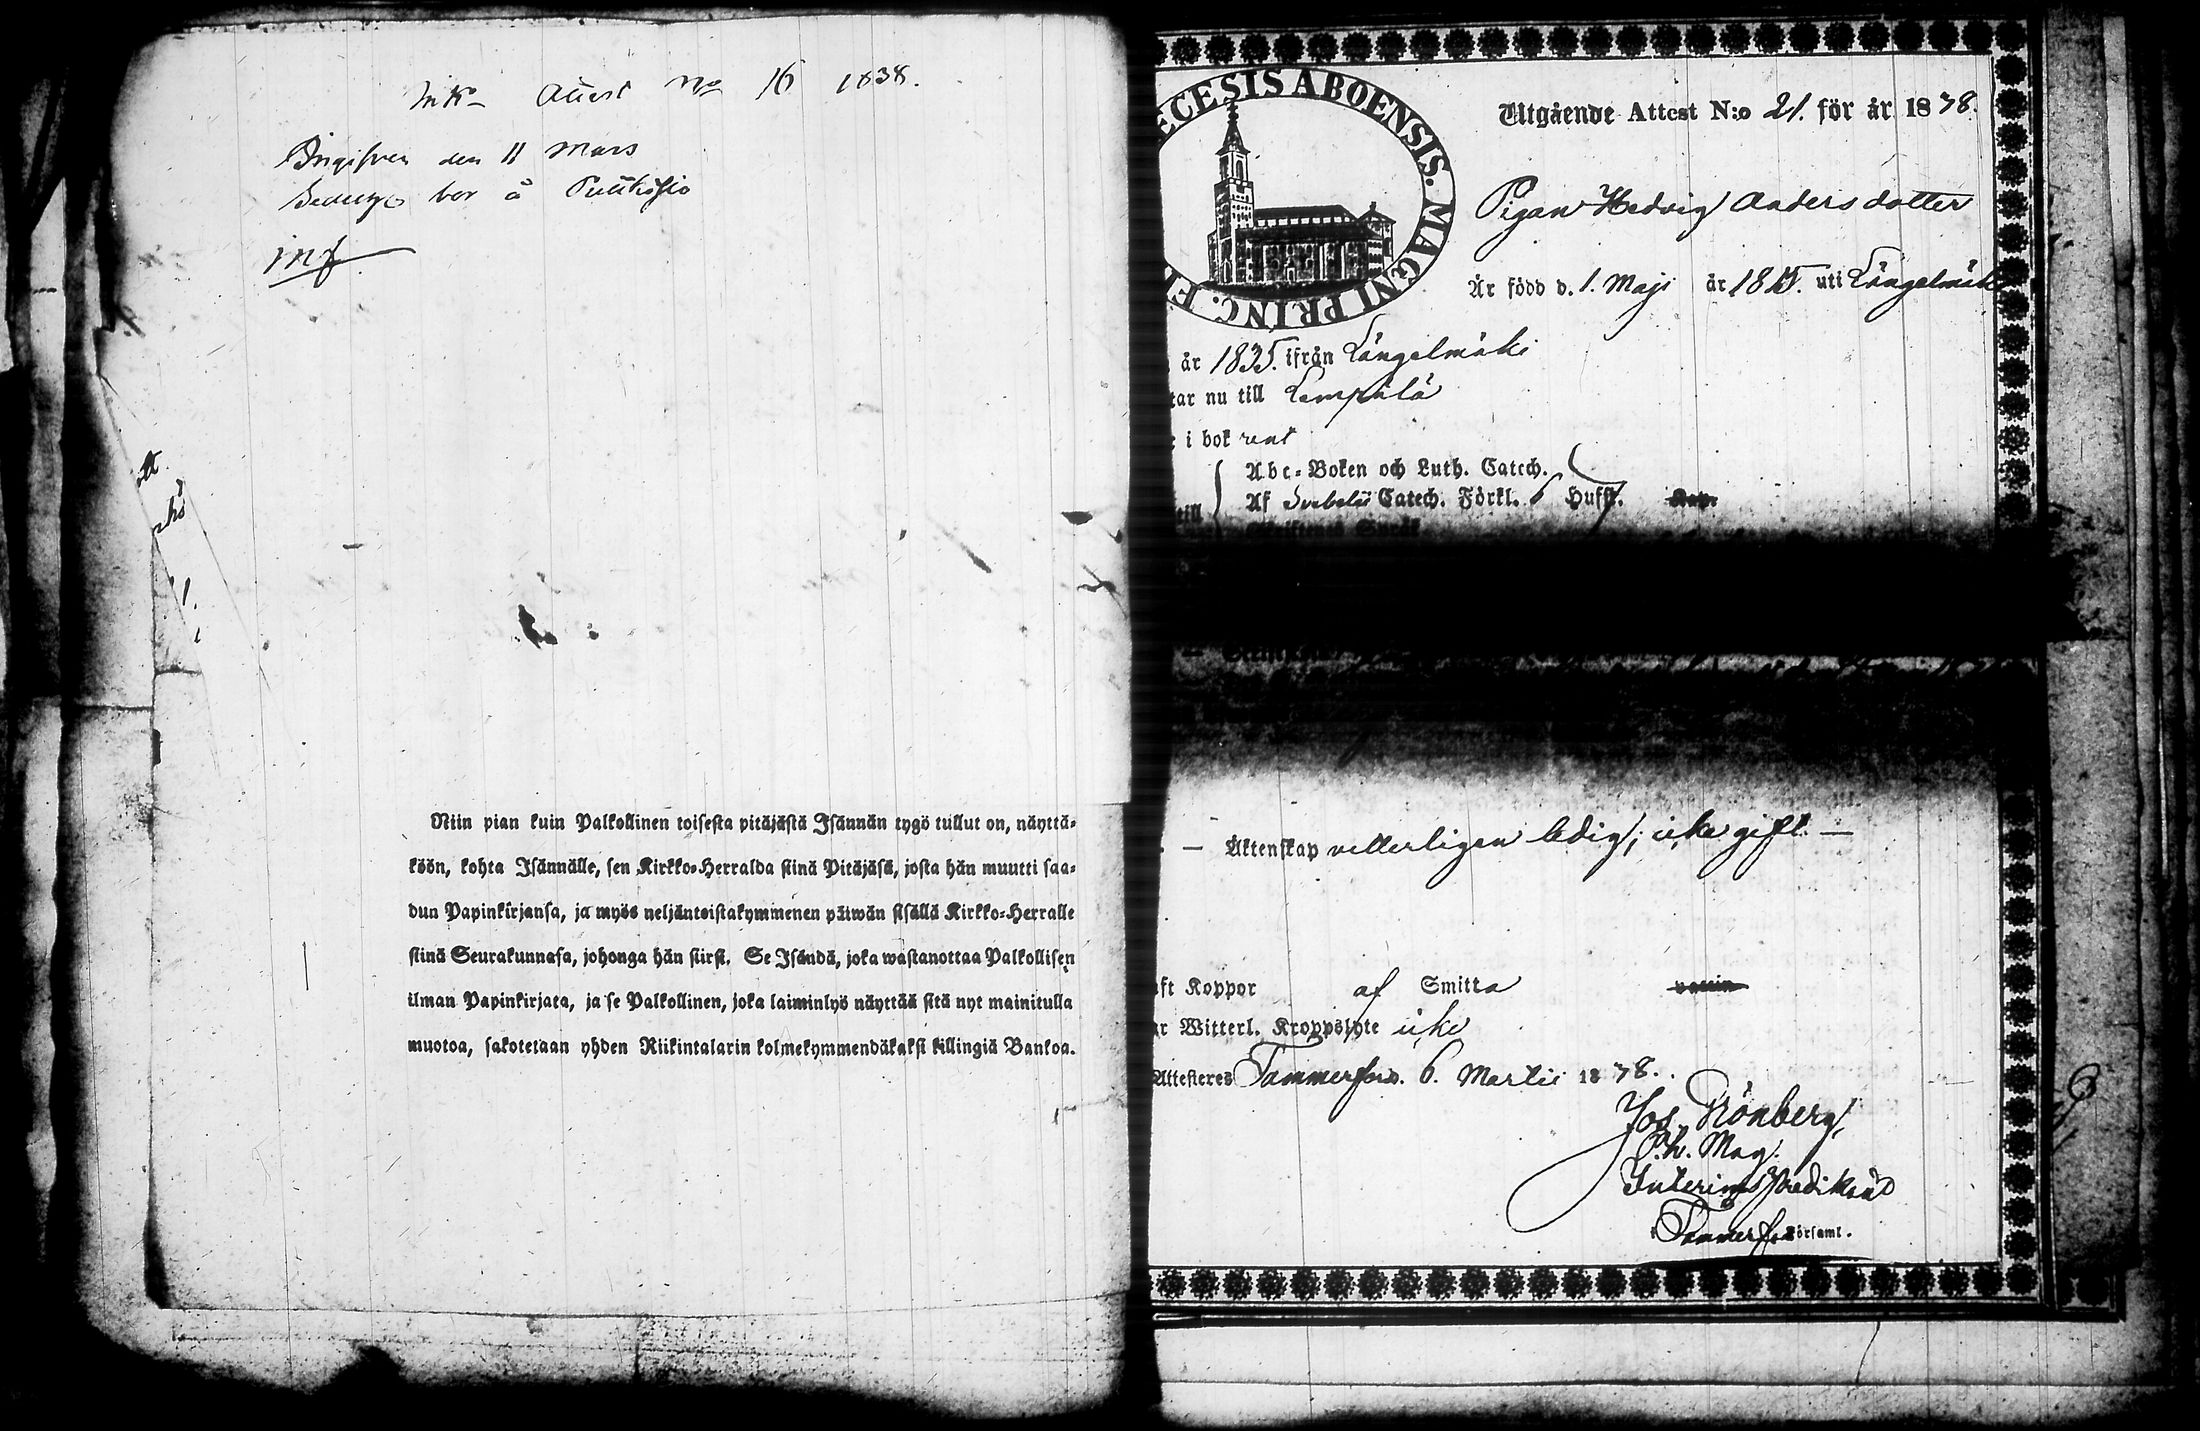 Ink. Attest No 16 1838.
Ingifven den 11 Mars
bor å
Niin pian kuin Palkollinen toisesta pitäjästä Isännän tygö tullut on, näyttä-
köön, kohta Isännälle, sen Kirkko-Herralda siinä Pitäjäsä, josta hän muutti saa-
dun Papinkirjansa, ja myös neljäntoistakymmenen päiwän sisällä Kirkko-Herralle
siinä Seurakunnasa, johonga hän siirsi. Se Isändä, joka wastanottaa Palkollisen
ilman Papinkirjata, ja se Palkollinen, joka laiminlyö näyttää sitä nyt mainitulla
muotoa, sakotetaan yhden Riikintalarin kolmekymmendäkaksi killingiä Bankoa.
ECESIS ABOENSIS. MAGNI PRINC. F
Utgående Attest N:o 21. för år 1838.
Pigan Hedvig Andersdotter
Är född d. 1. Maji år 1815. uti Längelmäki
år 1835. ifrån Längelmäki
tar nu till Lempälä
i bok rent
Abc-Boken och Luth. Catech.
till Af Svebelii Catech. Förkl. Hufst.
Äktenskap vetterligen ledig; icke gift. —
aft Koppor af Smitta
ar Witterl. Kroppslyte icke
Attesteres Tammerfors. 6. Martii 1838.
Jos. Grönberg,
Ph. Mag.
Interims Predikant
i Tammerfors Församl.